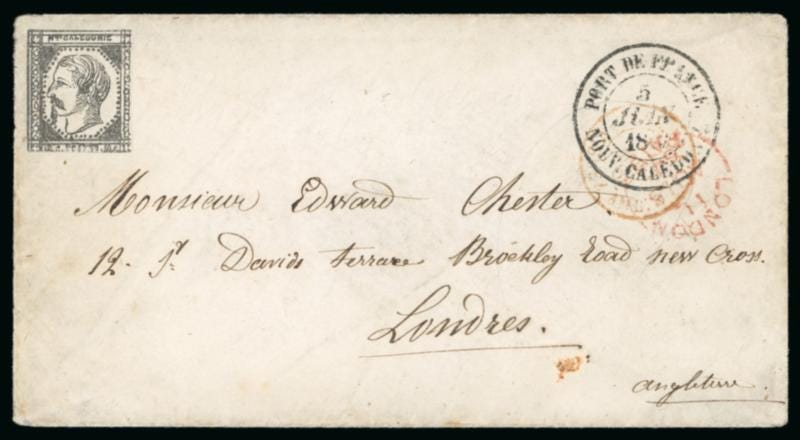 Nlle CALEDONIE
PORT DE FRANCE
5
JUIN
NOUV. CALEDO
LONDON
Monsieur Edward Chester.
12. St Davids terrace Brockley Road new Cross.
Londres.
angleterre.